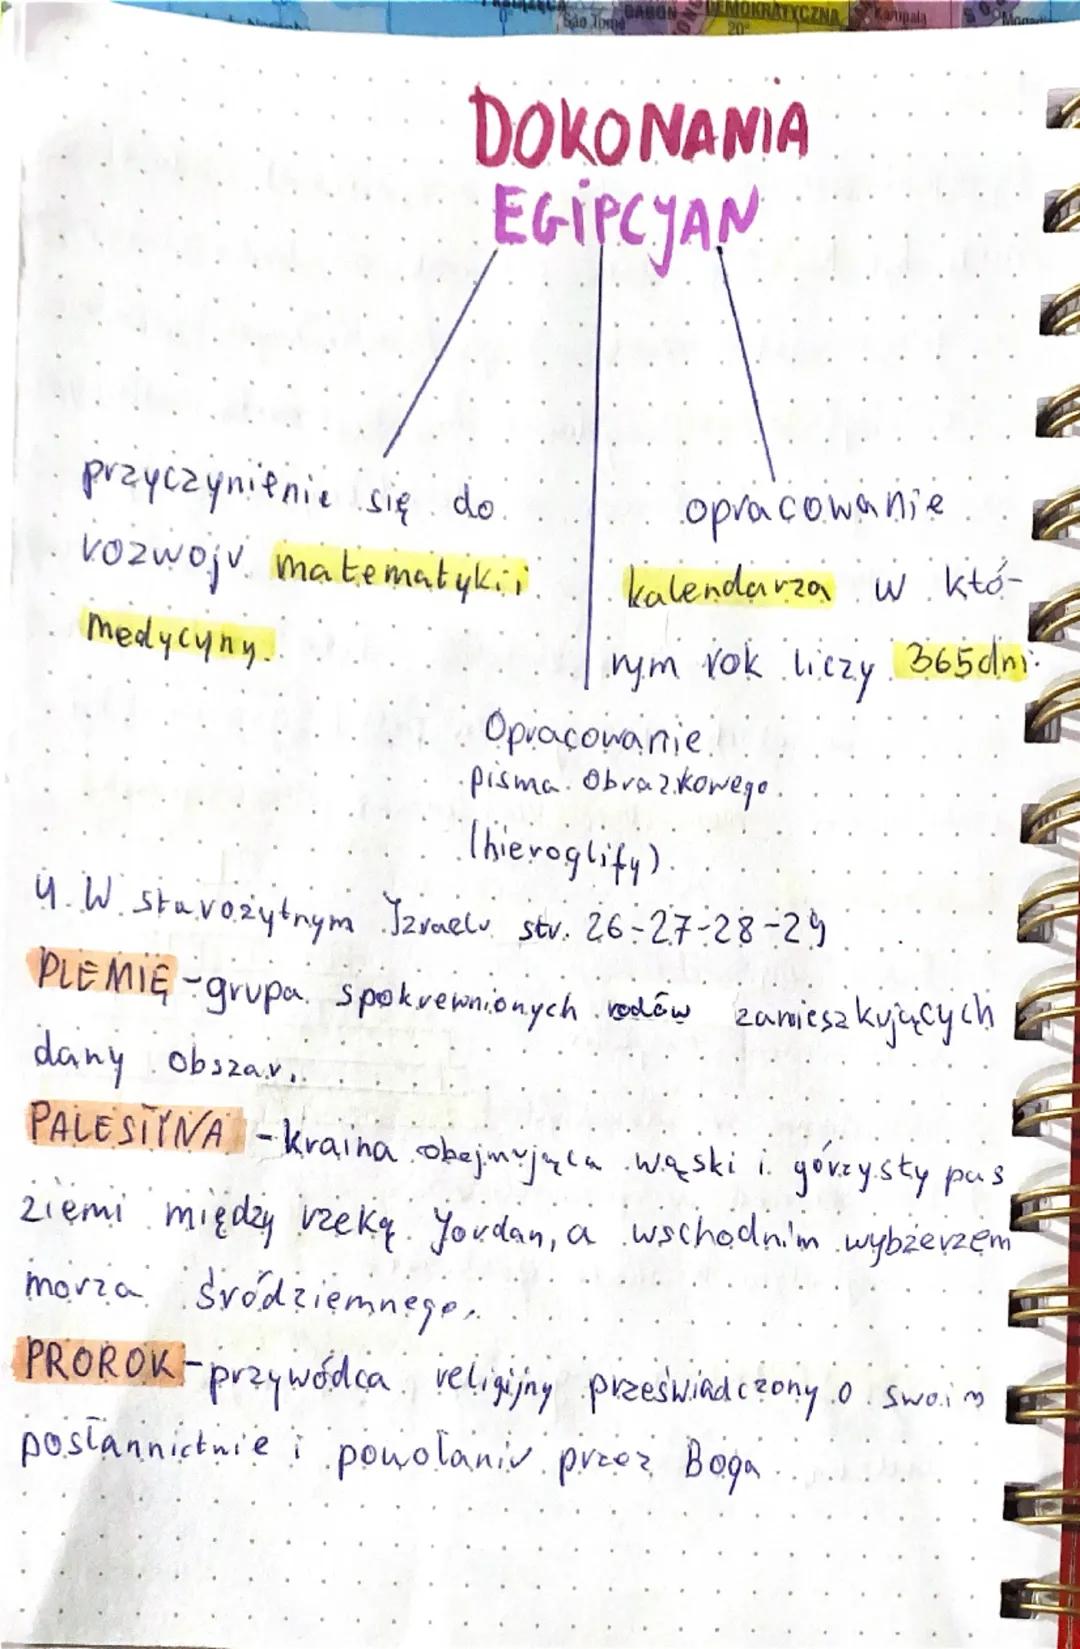 GABON
DEMOKRATYCZNA
São Tomé
0°
20°
Kampala
DOKONANIA
EGIPCJAN
przyczynienie się do
rozwoju matematyki i
medycyny.
opracowanie
kalendarza w któ-
rym rok liczy 365 dni.
Opracowanie
pisma obrazkowego
(hieroglify).
4. W starożytnym Izraelu str. 26-27-28-29
PLEMIĘ - grupa spokrewnionych rodów zamieszkujących
dany obszar.
PALESTYNA - kraina obejmująca wąski i górzysty pas
ziemi między rzeką Jordan, a wschodnim wybżerzem
morza śródziemnego.
PROROK - przywódca religijny przeświadczony o swoim
posłannictwie i powołaniu przez Boga